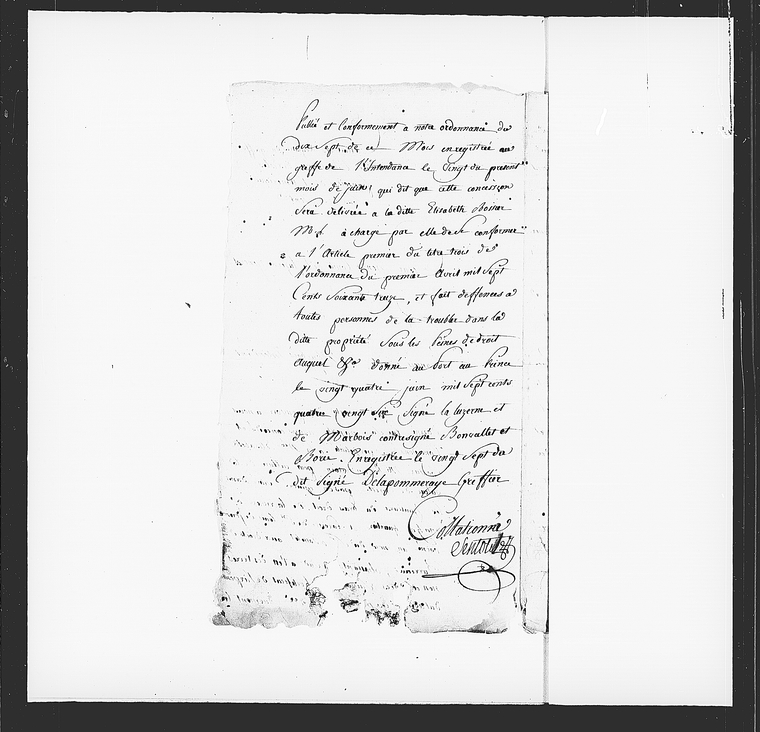 Publié et Conformement a notre ordonnance du
dix Sept de ce Mois enregistrée au
greffe de L'Intendance le Vingt du present
mois de juin, qui dit que cette concession
Sera delivrée a la ditte Elisabeth
M. L. à charge par elle de se conformer
a l'Article premier du titre trois de
l'ordonnance du premier Avril mil Sept
Cents Soixante treize, et fait deffences a
toutes personnes de la troubler dans la
ditte propriété Sous les peines de droit
auquel &a donné au Port au Prince
le vingt quatre juin mil sept cents
quatre vingt Six Signé la luzerne et
de Marbois contresigné Bonvallet et
Borie. Enregistrée le vingt Sept du
dit Signé Delapommeraye Greffier
Collationné